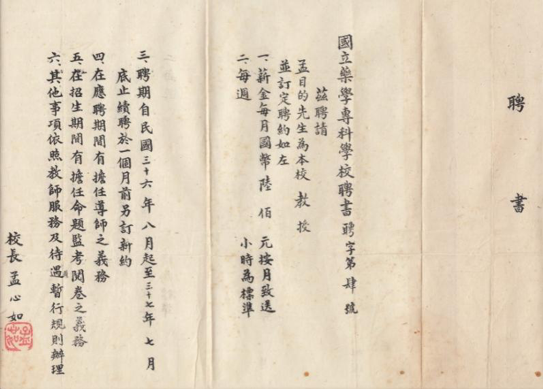 聘書
國立藥學專科學校聘書聘字第肆號
茲聘請
孟目的先生為本校 教授
並訂定聘約如左
一、薪金每月國幣 陸佰 元按月致送
二、每週 小時為標準
三、聘期自民國三十六年八月起至三十七年七月
底止續聘於一個月前另訂新約
四、在應聘期間有擔任導師之義務
五、在招生期間有擔任命題監考閱卷之義務
六、其他事項依照教師服務及待遇暫行規則辦理
校長 孟心如